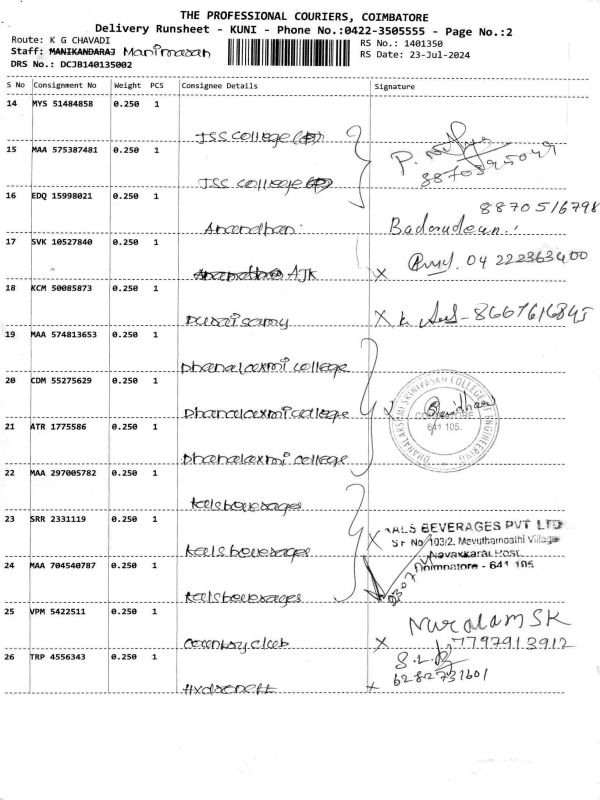 THE PROFESSIONAL COURIERS, COIMBATORE
Delivery Runsheet - KUNI - Phone No.:0422-3505555 - Page No.:2
Route: K G CHAVADI
RS No.: 1401350
Staff: MANIKANDARAJ Manimaran
RS Date: 23-Jul-2024
DRS No.: DCJB140135002
S No Consignment No Weight PCS Consignee Details Signature
14 MYS 51484858 0.250 1
JSS college
15 MAA 575387481 0.250 1
JSS college
16 EDQ 15998021 0.250 1
8870516798
Anandhan.
17 SVK 10527840 0.250 1
AJK
04 222363400
18 KCM 50085873 0.250 1
Duraisamy
8667616845
19 MAA 574813653 0.250 1
Dhanalaxmi college
20 CDM 55275629 0.250 1
Dhanalaxmi college
DHANALAKSHMI SRINIVASAN COLLEGE OF ENGINEERING
COIMBATORE
641 105.
21 ATR 1775586 0.250 1
Dhanalaxmi college
22 MAA 297005782 0.250 1
kals beverages
23 SRR 2331119 0.250 1
KALS BEVERAGES PVT LTD
S F No 103/2, Mavuthampathi Village
kals beverages
Navakkarai Post,
24 MAA 704540787 0.250 1
Coimbatore - 641 105
kals beverages
25 VPM 5422511 0.250 1
Nuralam SK
country club
7797913912
26 TRP 4556343 0.250 1
6282731601